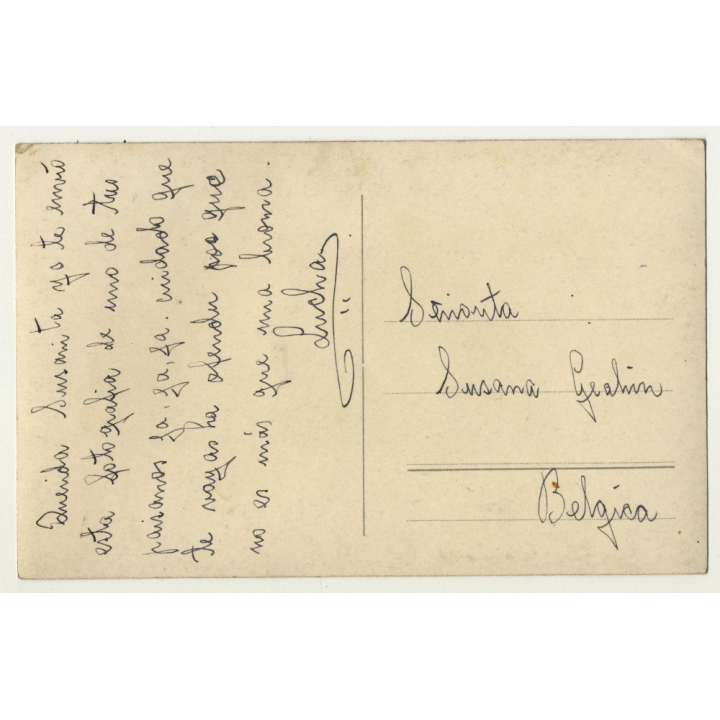 Querida Susanita yo te envio
esta fotografia de uno de tus
paisanos Ja, Ja, Ja. cuidado que
te vayas ha ofender por que
no es más que una broma.
Lucha
Señorita
Susana
Belgica